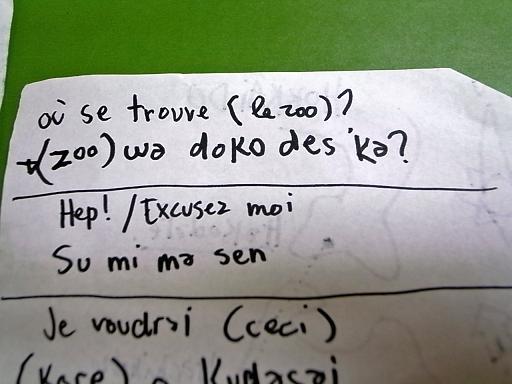 où se trouve (le zoo)?
(zoo) wa doko des'ka?
Hep! / Excusez moi
Su mi ma sen
Je voudrai (ceci)
(Kore) o Kudasai